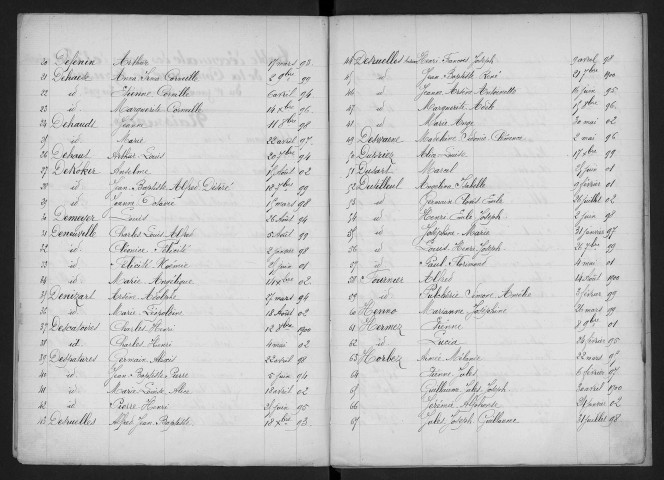 20 Defenin Arthur 17 mars 93
21 Dehaese Anna Irma Corneille 2 9bre 90
22 id Etienne Corneille 6 avril 94
23 id Marguerite Corneille 14 Xbre 96
24 Dehaudt Jeanne 11 7bre 98
25 id Marie 22 avril 97
26 Debaut Arthur Louis 20 7bre 94
27 Detroker Anselme 17 Août 02
28 id Jean Baptiste Alfred Désiré 10 7bre 99
29 id Jeanne Octavie 1r mars 98
30 Demeyer Louis 26 Août 94
31 Deneuville Charles Louis Alfred 5 Août 99
32 id Cléonice Félicité 2 janvier 98
33 id Félicité Noémie juin 01
34 id Marie Angélique Xbre 02
35 Denizart Arsène Adolphe 27 mars 94
36 id Marie Léopoldine 18 Août 02
37 Descatoires Charles Henri 12 8bre 1900
38 id Charles Henri 4 mai 02
39 Desfratures Germain Alois 22 avril 98
40 id Jean Baptiste Pierre 5 juin 94
41 id Marie Louise Alice 18 avril 02
42 id Pierre Henri 21 juin 95
43 Desruelles Alfred Jean Baptiste 18 Xbre 93
Desruelles Henri François Joseph 2 avril 98
45 id Jean Baptiste René 21 7bre 1900
46 id Jeanne Arsène Antoinette juin 95
47 id Marguerite 8bre 96
48 id Marie Ange 30 mai 02
49 Madeleine Sidonie Clémence 2 mai 96
50 Louise 17 9bre 99
51 Dusart Marcel juin 01
52 Dutilleul Angelina Isabelle 9 février 01
53 id Germain Louis Emile 26 juillet 02
54 id Henri Emile Joseph 2 juin 98
55 id Joséphine Marie 31 janvier 97
56 id Louis Henri Joseph 26 7bre 99
57 id Paul Florimond 4 mai 01
58 Fournier Alfred 14 Août 1900
59 id Pulchérie Simone Amélie 3 février 99
60 Henno Marianne Joséphine 20 mars 99
61 Hermez Etienne 9bre 01
62 id Lucia 24 février 95
63 Horbez Aimée Mélanie 22 mars
64 id Etienne Jules 6 février 97
65 id Guillaume Jules Joseph 30 avril 1900
66 id Jérémie Alphonse 24 janvier 02
67 id Jules Joseph Guillaume 31 juillet 98